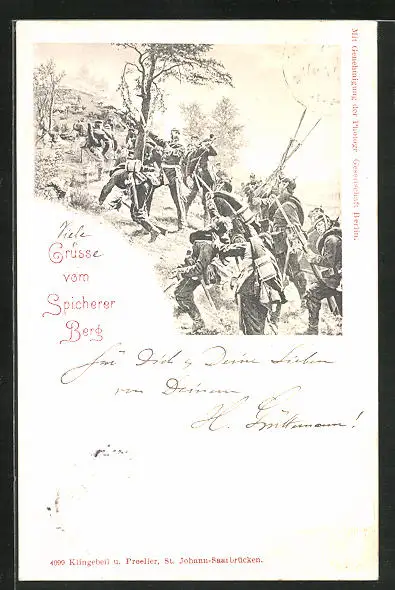 Mit Genehmigung der Photogr. Gesellschaft Berlin.
Viele
Grüsse
vom
Spicherer
Berg
Für Dich & Deine Lieben
von Deinem
H. !
4099 Klingebeil u. Preeller, St. Johann-Saarbrücken.